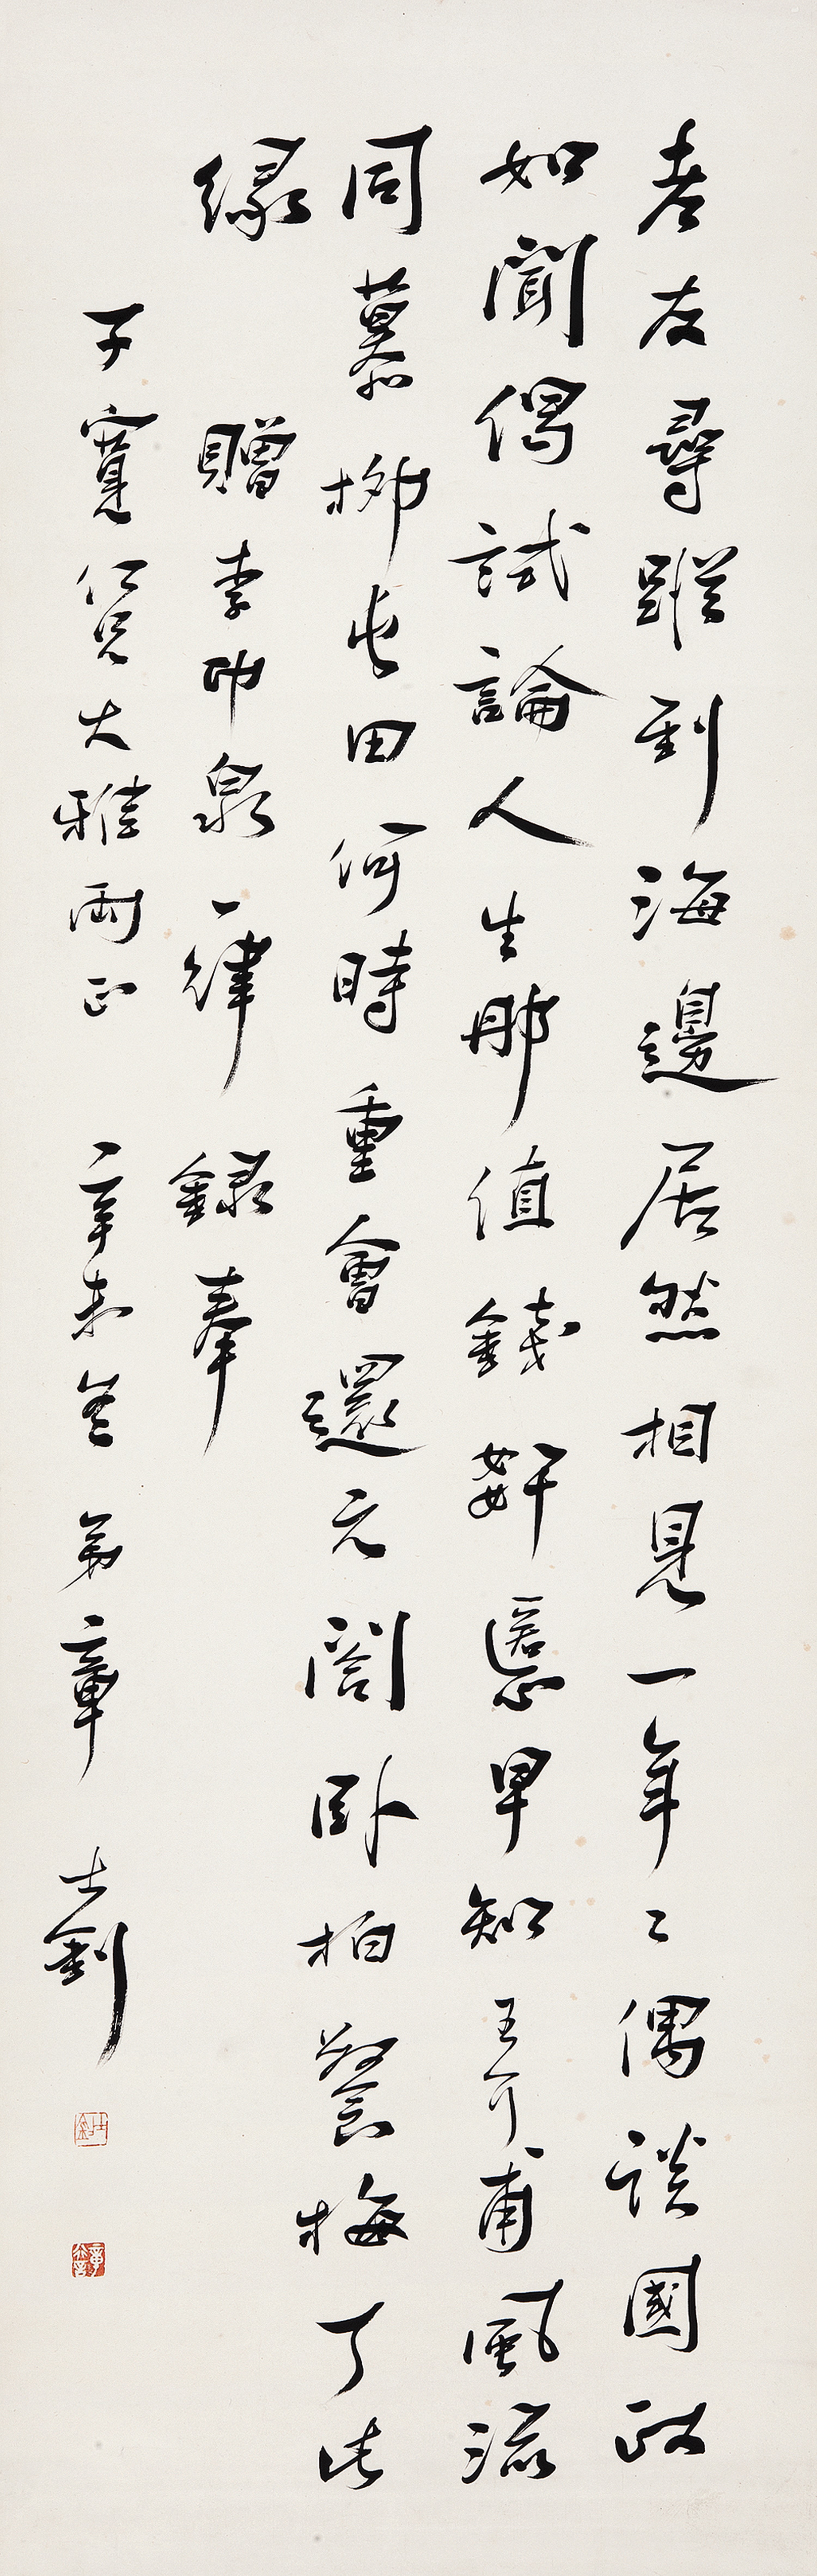 老友尋蹤到海邊居然相見一年々偶談國政
如聞偈試論人生那值錢姧慝早知王介甫風流
同慕柳屯田何時重會還元閣臥柏餐梅了此
緣
贈李印泉一律 錄奉
子寬仁兄大雅兩正 辛未冬 弟章士釗